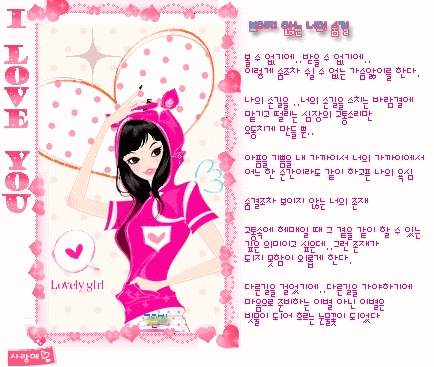 I LOVE YOU
보이지 않는 너의 숨결
볼 수 없기에.. 받을 수 없기에..
이렇게 숨조차 쉴 수 없는 가슴앓이를 한다.
나의 숨길을 ..너의 숨길을 스치는 바람결에
맡기고 떨리는 심장의 고통소리만
요동치게 만들 뿐..
아픔을 기쁨을 내 가까이서 너의 가까이에서
어느 한 순간이라도 같이 하고픈 나의 욕심
숨결조차 보이지 않는 너의 존재
고통속에 헤매일 때 그 곁을 같이 할 수 있는
깊은 의미이고 싶은데..그런 존재가
되지 못함이 외롭게 한다.
다른길을 걸었기에..다른길을 가야하기에
마음으로 준비하는 이별 아닌 이별은
빗물이 되어 흐르는 눈물꽃이 되었다
Lovely girl
사랑해